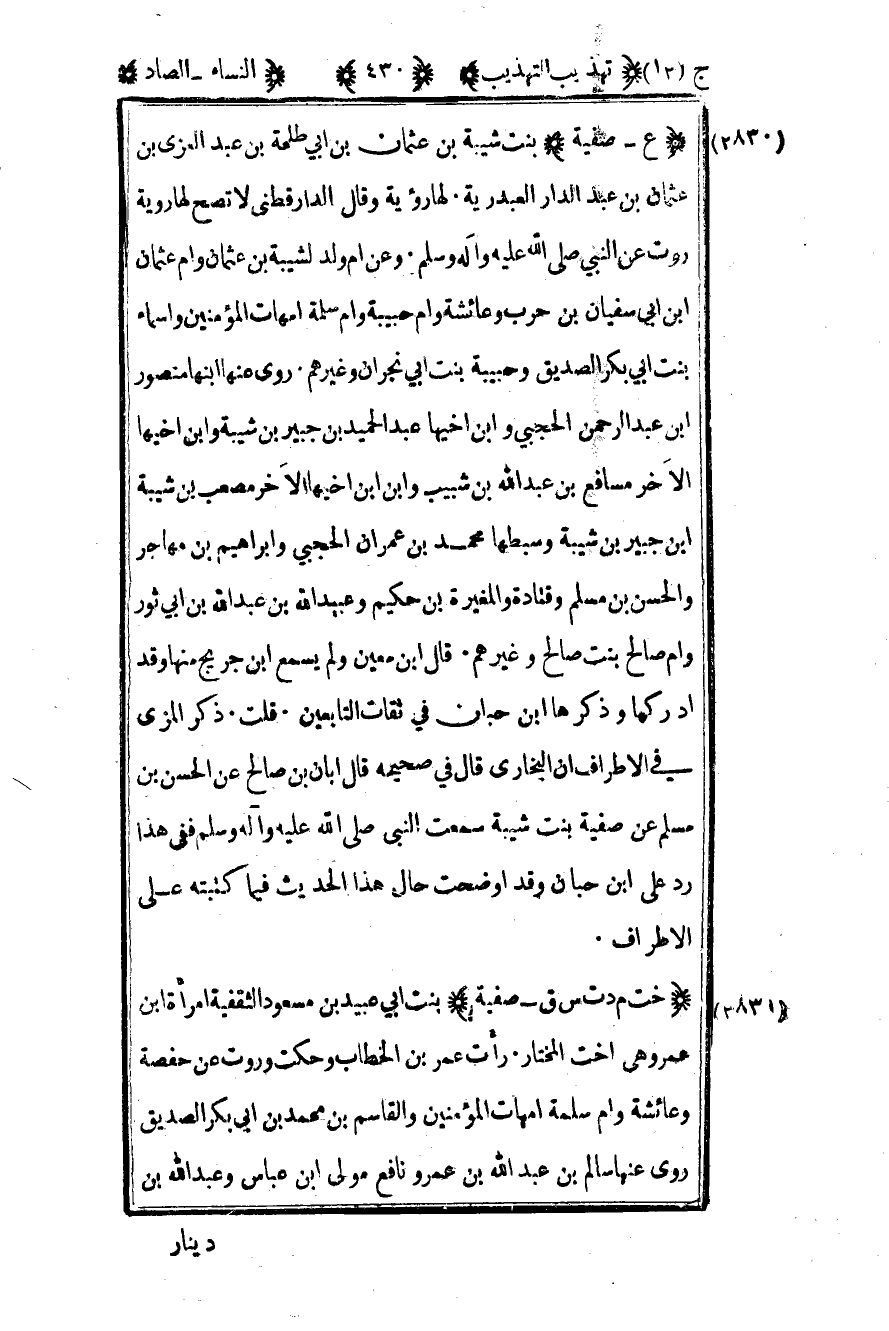 ج (١٢) ﴿ تهذيب التهذيب ﴾ ﴿ ٤٣٠ ﴾ ﴿ النساء - الصاد ﴾
(٢٨٣٠) ﴿ ع - صفية ﴾ بنت شيبة بن عثمان بن ابي طلحة بن عبد العزى بن
عثمان بن عبد الدار العبدرية · لها رؤية وقال الدارقطنى لا تصح لها روية
روت عن النبي صلى الله عليه وآله وسلم · وعن ام ولد لشيبة بن عثمان وام عثمان
ابن ابي سفيان بن حرب وعائشة وام حبيبة وام سلمة امهات المؤمنين واسماء
بنت ابي بكر الصديق وحبيبة بنت ابي نجران وغيرهم · روى عنها ابنها منصور
ابن عبد الرحمن الحجبي و ابن اخيها عبد الحميد بن جبير بن شيبة وابن اخيها
الآخر مسافع بن عبد الله بن شبيب وابن ابن اخيها الآخر مصعب بن شيبة
ابن جبير بن شيبة وسبطها محمد بن عمران الحجبي وابراهيم بن مهاجر
والحسن بن مسلم وقتادة والمغيرة بن حكيم وعبيد الله بن عبد الله بن ابي ثور
وام صالح بنت صالح و غيرهم · قال ابن معين ولم يسمع ابن جريج منها وقد
ادركها و ذكرها ابن حبان في ثقات التابعين · قلت · ذكر المزى
في الاطراف ان البخارى قال في صحيحه قال ابان بن صالح عن الحسن بن
مسلم عن صفية بنت شيبة سمعت النبى صلى الله عليه وآله وسلم ففى هذا
رد على ابن حبان وقد اوضحت حال هذا الحديث فيما كتبته على
الاطراف ·
(٢٨٣١) ﴿ خت م د ت س ق - صفية ﴾ بنت ابي عبيد بن مسعود الثقفية امرأة ابن
عمر وهي اخت المختار · رأت عمر بن الخطاب وحكت وروت عن حفصة
وعائشة وام سلمة امهات المؤمنين والقاسم بن محمد بن ابي بكر الصديق
روى عنها سالم بن عبد الله بن عمر و نافع مولى ابن عباس وعبد الله بن
دينار